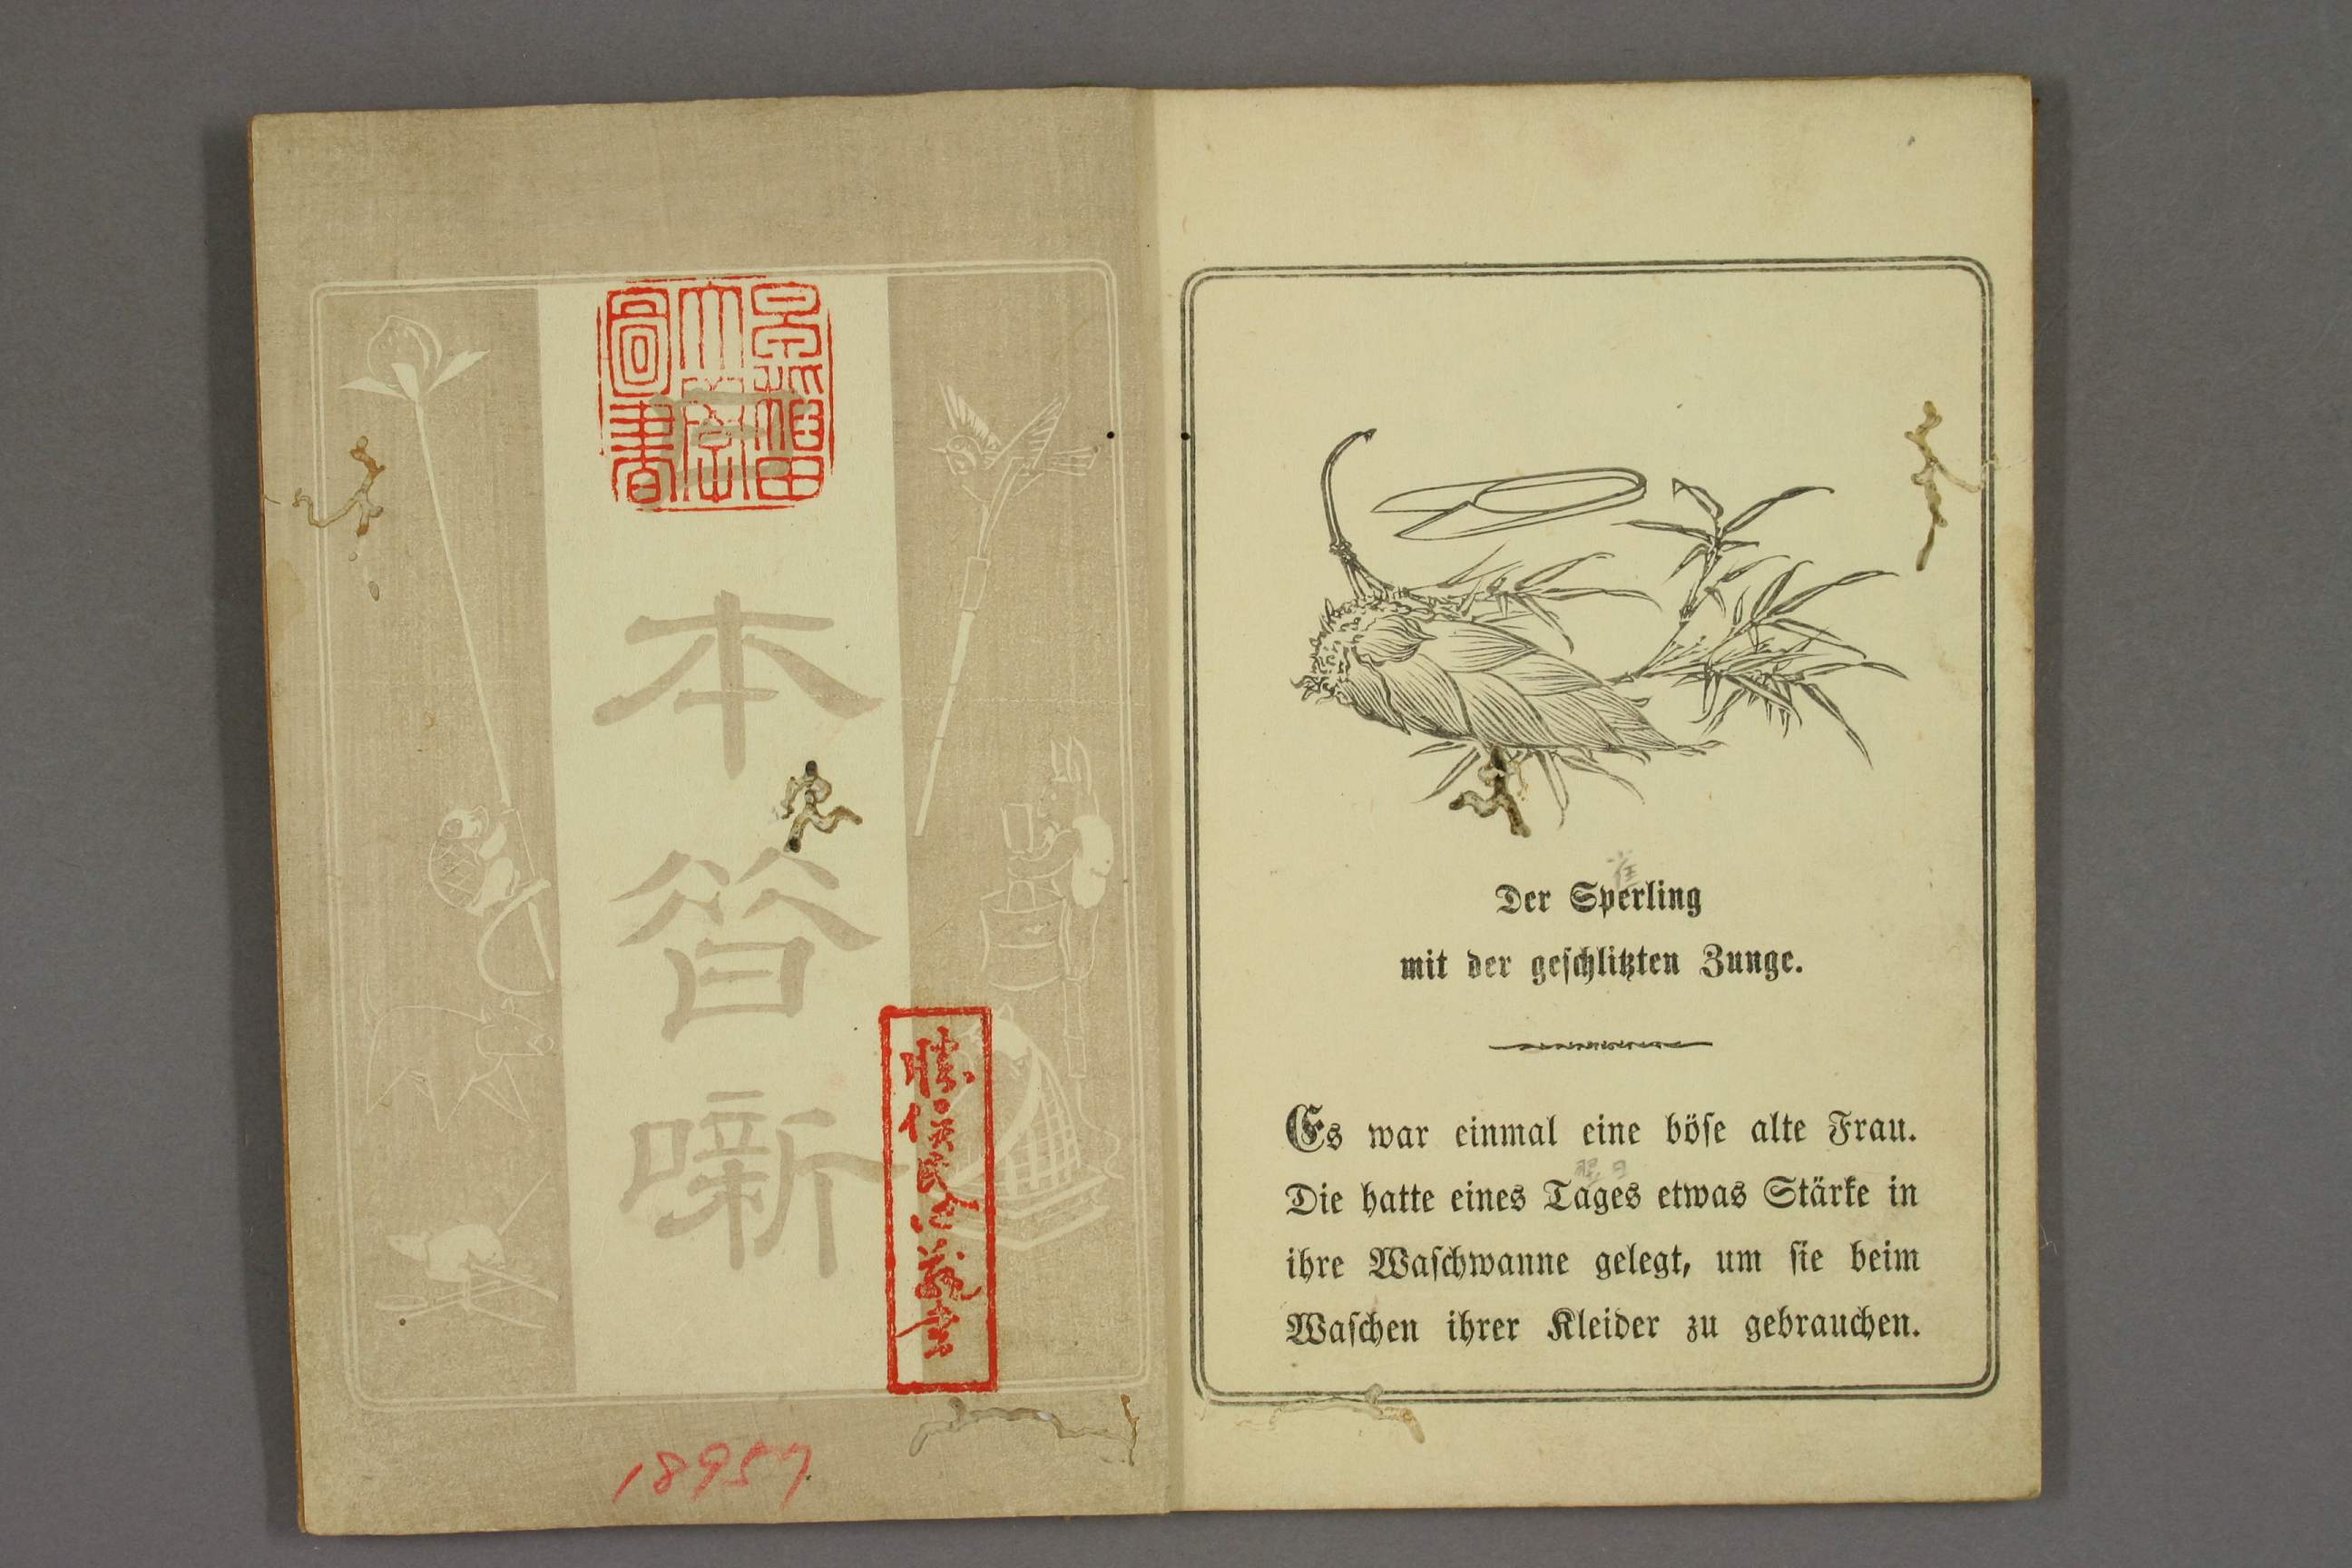 早稲田
大學
圖書
本昔噺
18957
雀
Der Sperling
mit der geſchlitzten Zunge.
Es war einmal eine böſe alte Frau.
翌日
Die hatte eines Tages etwas Stärke in
ihre Waſchwanne gelegt, um ſie beim
Waſchen ihrer Kleider zu gebrauchen.